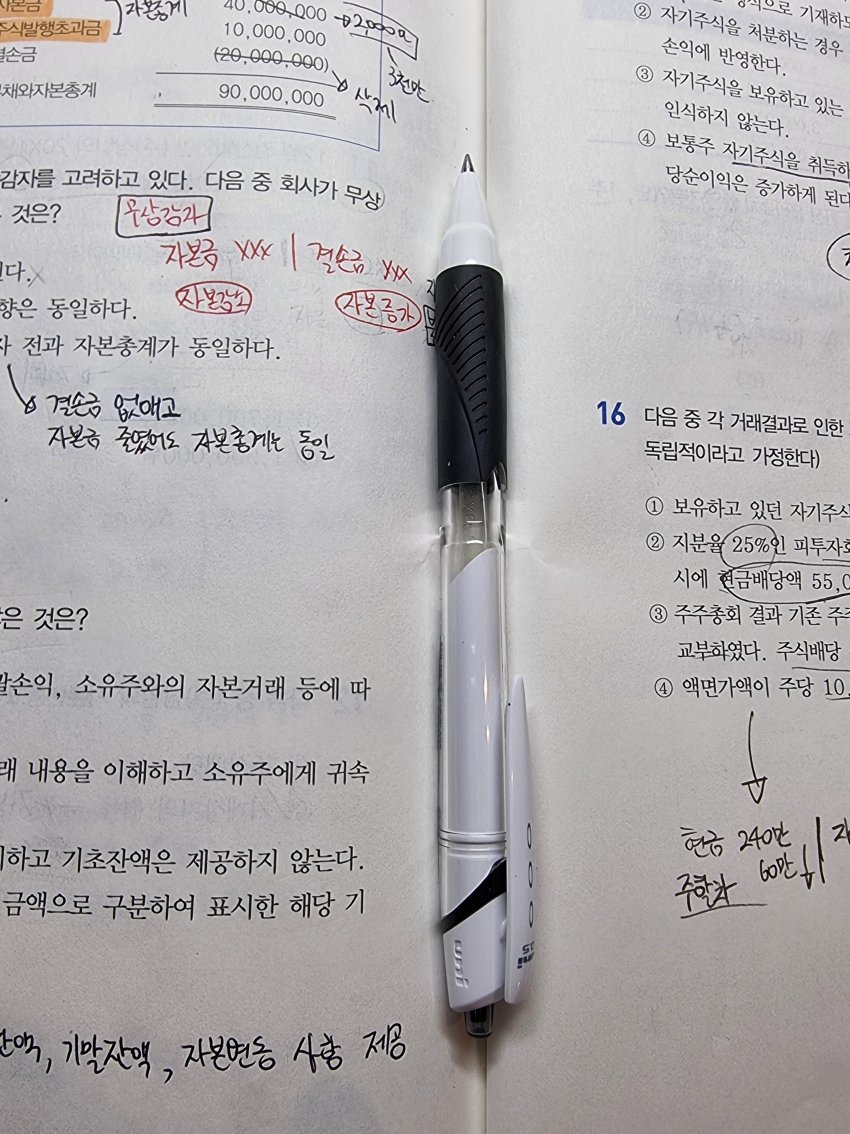 자본금
자본총계
40,000,000
2,000만
주식발행초과금
10,000,000
결손금
(20,000,000)
3천만
부채와자본총계
90,000,000
삭제
감자를 고려하고 있다. 다음 중 회사가 무상
것은?
무상감자
자본금 XXX | 결손금 XXX
자본감소
자본증가
항은 동일하다.
전과 자본총계가 동일하다.
결손금 없애고
자본금 줄였어도 자본총계는 동일
은 것은?
괄손익, 소유주와의 자본거래 등에 따
래 내용을 이해하고 소유주에게 귀속
하고 기초잔액은 제공하지 않는다.
금액으로 구분하여 표시한 해당 기
잔액, 기말잔액, 자본변동 사항 제공
② 자기주식을 처분하는 경우
손익에 반영한다.
③ 자기주식을 보유하고 있는
인식하지 않는다.
④ 보통주 자기주식을 취득하
당순이익은 증가하게 된다
16 다음 중 각 거래결과로 인한
독립적이라고 가정한다)
① 보유하고 있던 자기주식
② 지분율 25%인 피투자회
시에 현금배당액 55,0
③ 주주총회 결과 기존 주주
교부하였다. 주식배당
④ 액면가액이 주당 10,
현금 240만
주할차 60만
uni